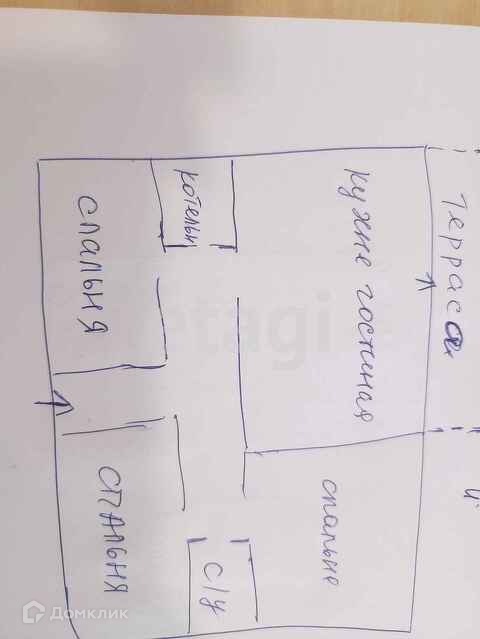 Терраса
кухне гостиная
котельн
спальня
спальня
спальне
с/у
etagi
Домклик